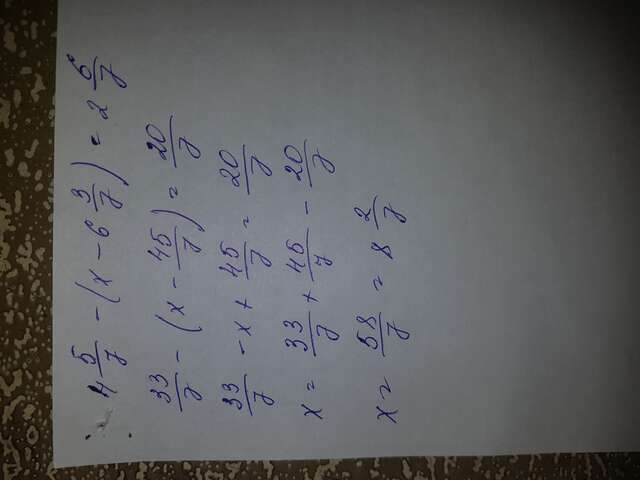 4 5/7 - (x - 6 3/7) = 2 6/7
33/7 - (x - 45/7) = 20/7
33/7 - x + 45/7 = 20/7
x = 33/7 + 45/7 - 20/7
x = 58/7 = 8 2/7